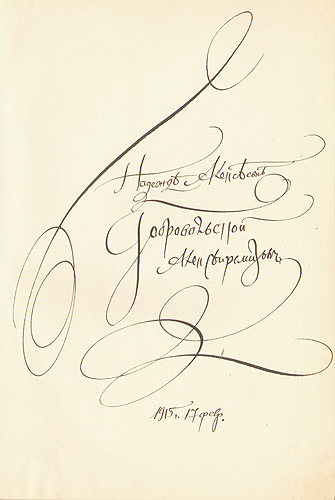 Надеждѣ Алексѣевнѣ
Добровольской
Алексѣй Ремизовъ
1915 г. 17 февр.